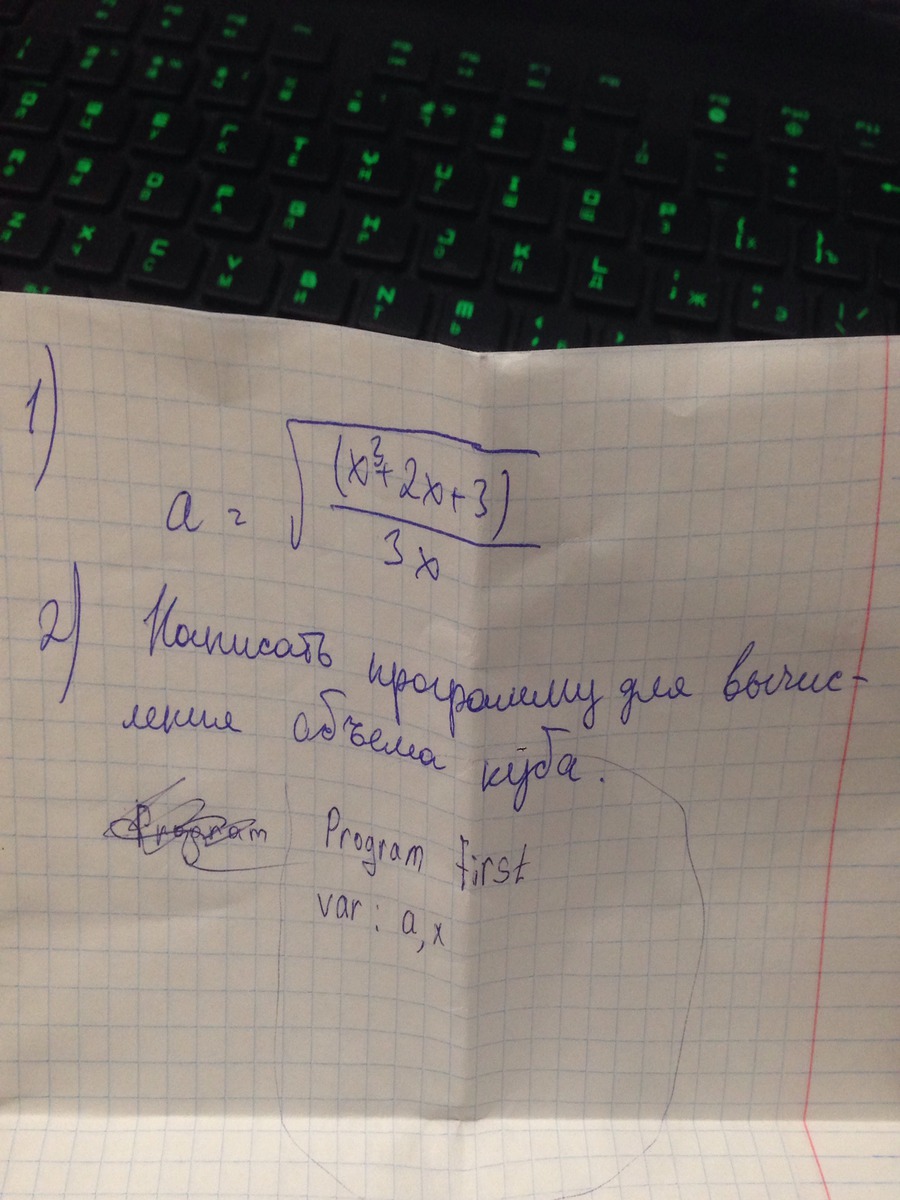 1)
a = √((x³+2x+3)/3x)
2) Написать программу для вычис-
ления объема куба.
Program First
var: a, x